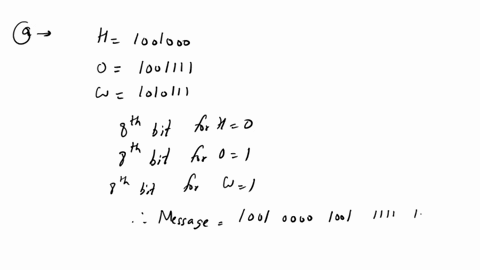 a → H = 1001000
O = 1001111
W = 1010111
8th bit for H = 0
8th bit for O = 1
8th bit for W = 1
∴ Message = 1001 0000 1001 1111 1.